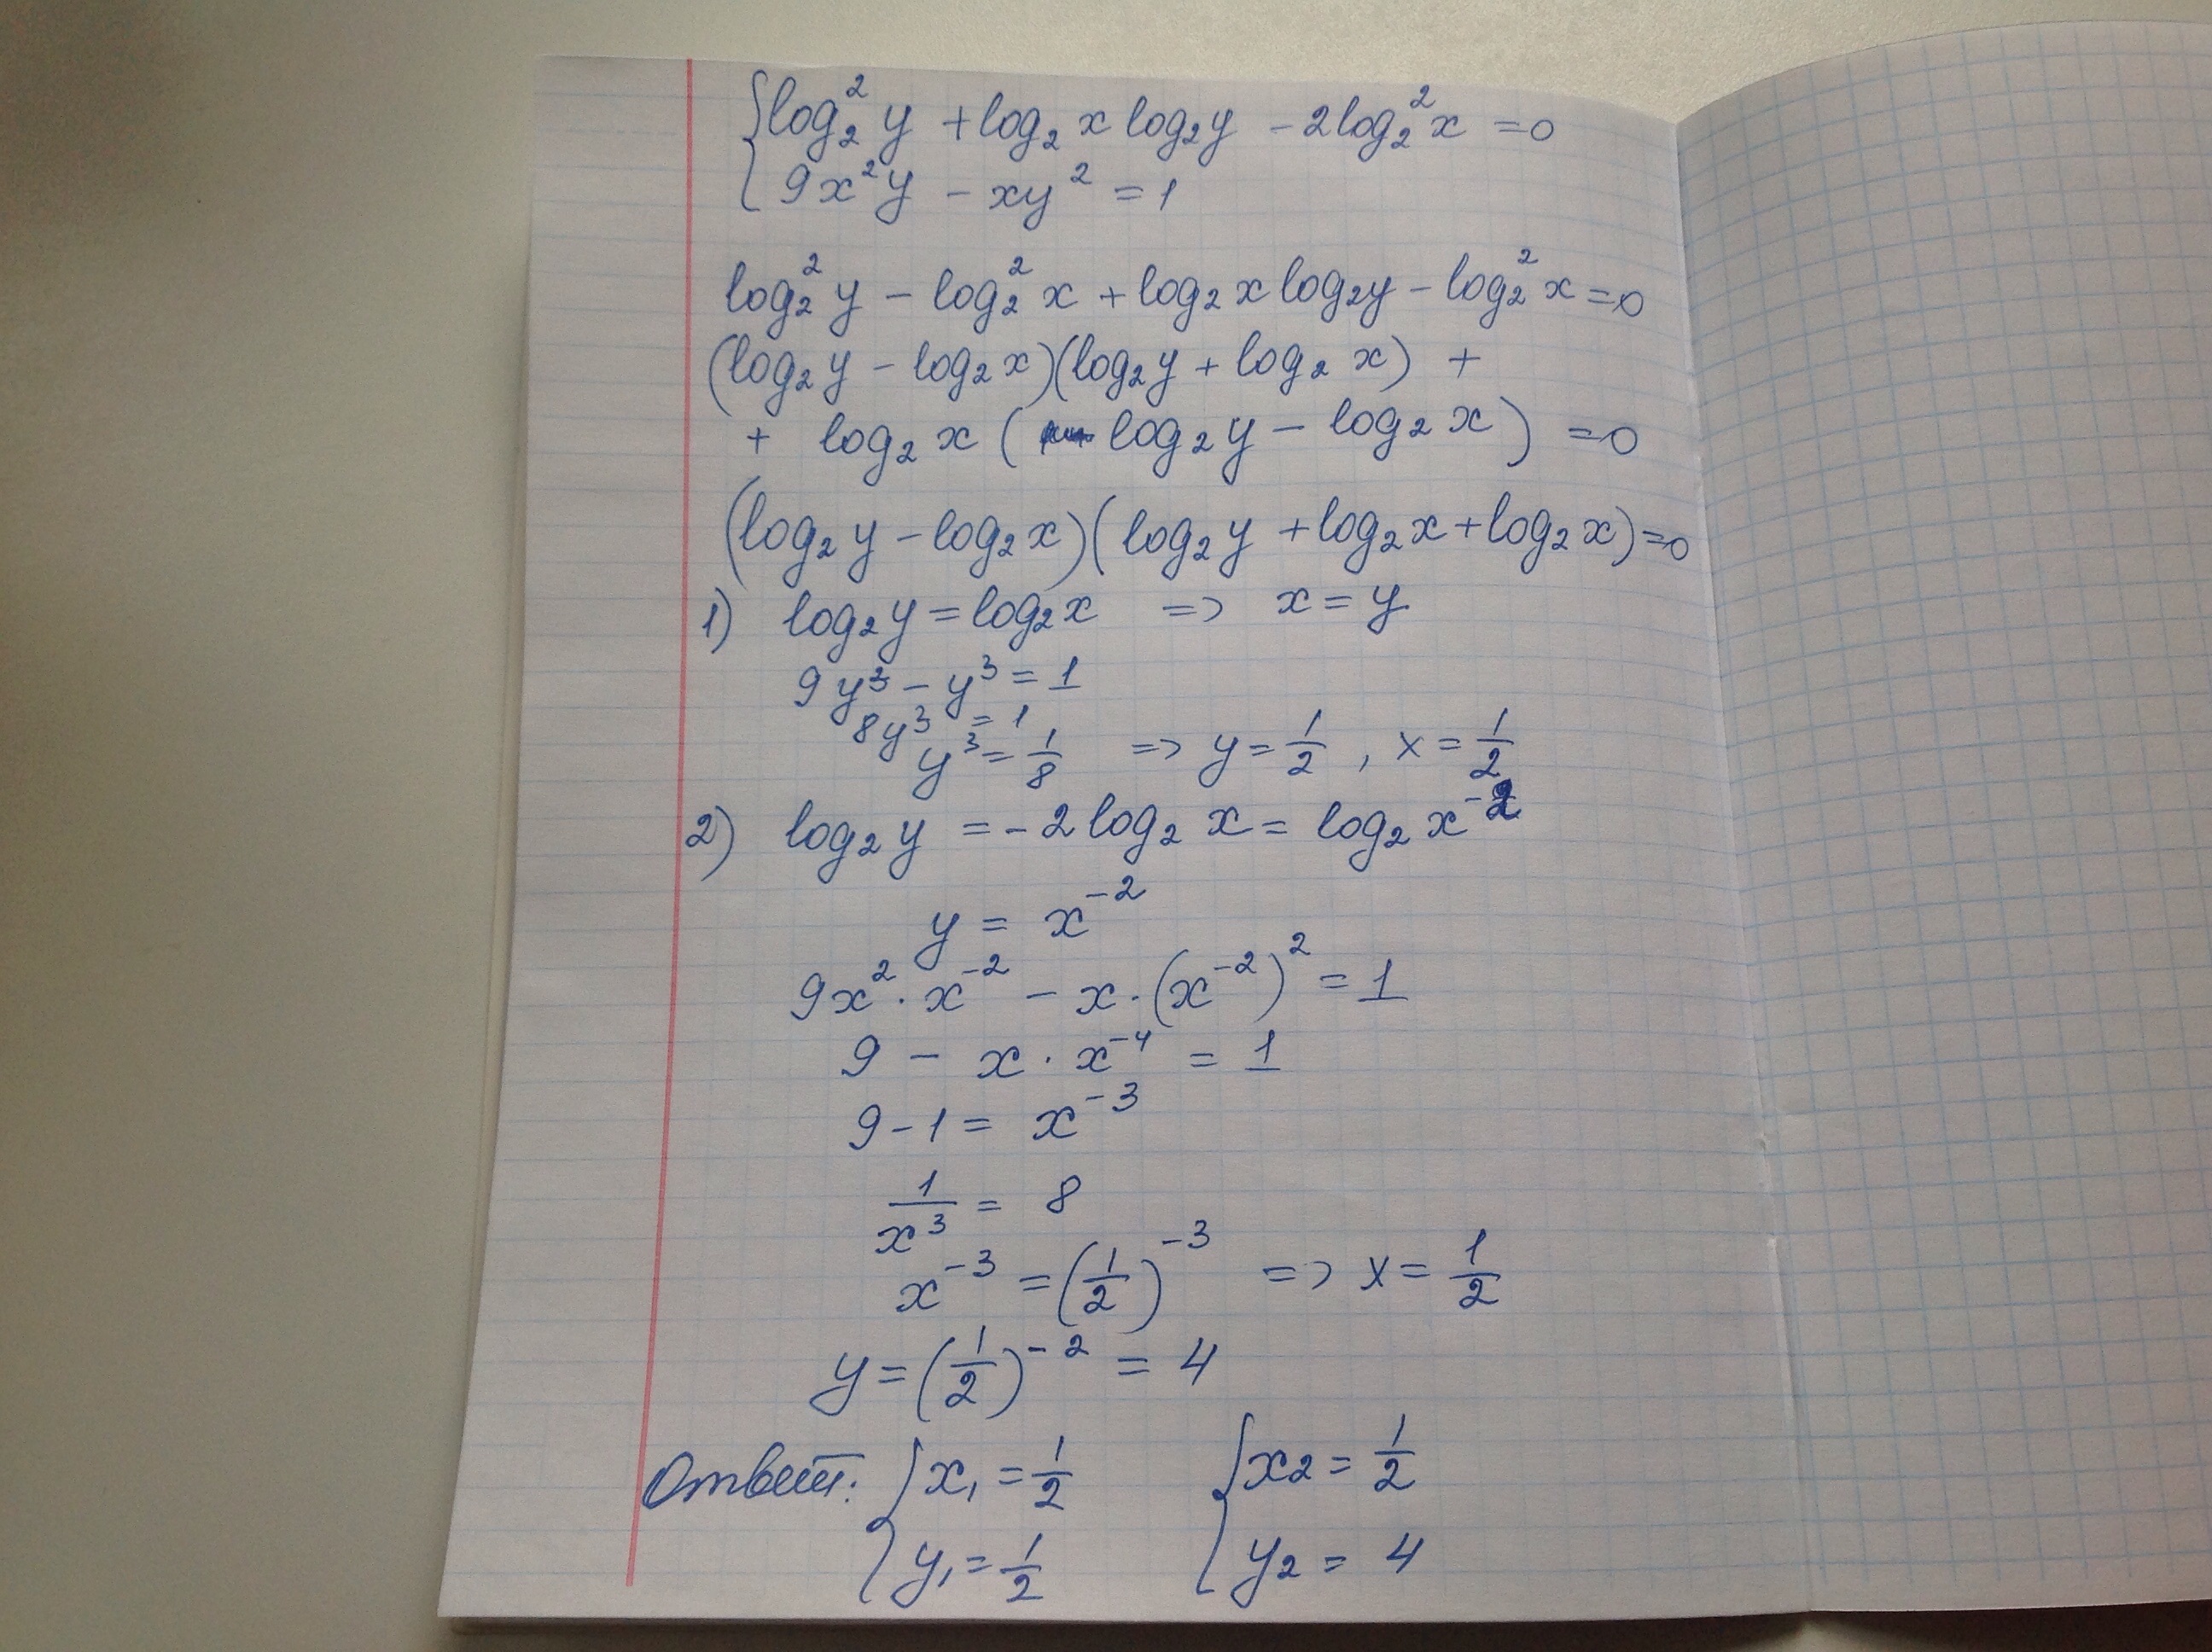 { log₂² y + log₂ x log₂ y − 2 log₂² x = 0
9x²y − xy² = 1
log₂² y − log₂² x + log₂ x log₂ y − log₂² x = 0
(log₂ y − log₂ x)(log₂ y + log₂ x) +
+ log₂ x ( log₂ y − log₂ x) = 0
(log₂ y − log₂ x)(log₂ y + log₂ x + log₂ x) = 0
1) log₂ y = log₂ x => x = y
9y³ − y³ = 1
8y³ = 1
y³ = 1/8 => y = 1/2 , x = 1/2
2) log₂ y = − 2 log₂ x = log₂ x⁻²
y = x⁻²
9x² · x⁻² − x · (x⁻²)² = 1
9 − x · x⁻⁴ = 1
9 − 1 = x⁻³
1/x³ = 8
x⁻³ = (1/2)⁻³ => x = 1/2
y = (1/2)⁻² = 4
Ответ: { x₁ = 1/2 { x₂ = 1/2
y₁ = 1/2 y₂ = 4